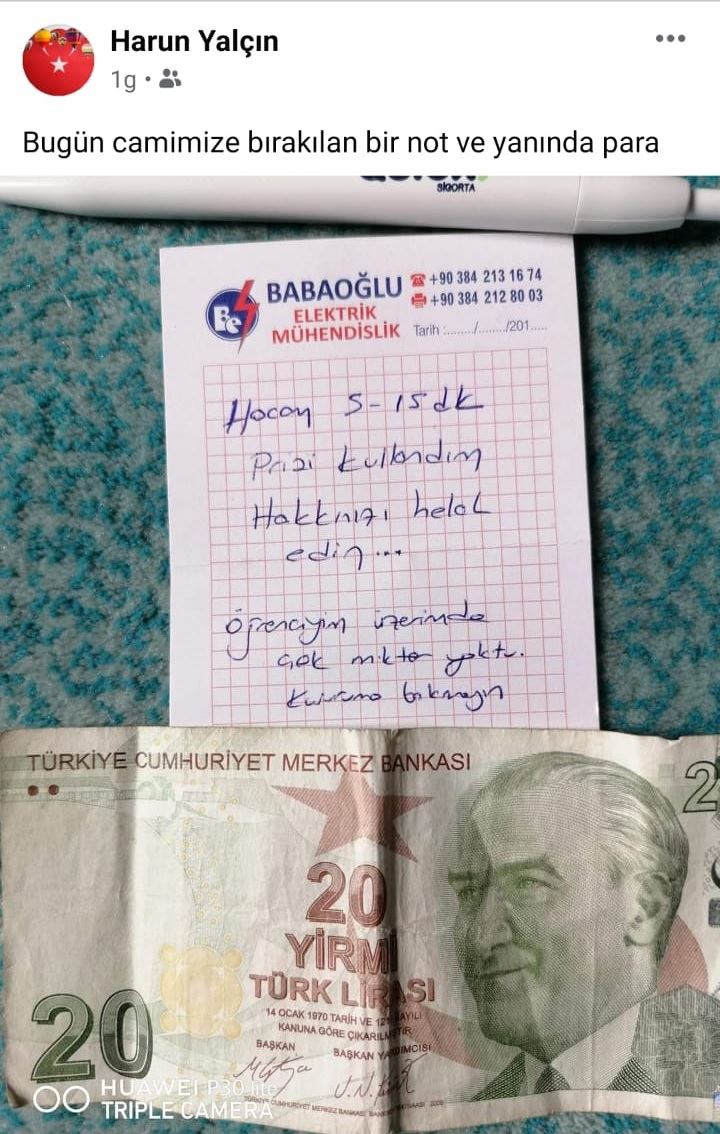 Harun Yalçın
1g
Bugün camimize bırakılan bir not ve yanında para
SİGORTA
Be
BABAOĞLU
ELEKTRİK
MÜHENDİSLİK
+90 384 213 16 74
+90 384 212 80 03
Tarih :......../......../201.....
Hocam 5-15 dk
Prizi kullandım
Hakkınızı helal
edin...
Öğrenciyim üzerimde
çok miktar yoktu.
Kusuruma bakmayın
TÜRKİYE CUMHURİYET MERKEZ BANKASI
2
20
YİRMİ
TÜRK LİRASI
14 OCAK 1970 TARİH VE 1211 SAYILI
KANUNA GÖRE ÇIKARILMIŞTIR
BAŞKAN
BAŞKAN YARDIMCISI
20
HUAWEI P30 lite
TRIPLE CAMERA